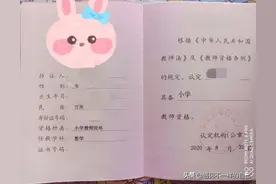 持 证 人
性 别 女
出生年月
民 族 汉族
身份证号码
资格种类 小学教师资格
任教学科 数学
证书号码
根据《中华人民共和国
教师法》及《教师资格条例》
的规定，认定
具备 小学
教师资格。
认定机构（公章）
2020 年 8 月